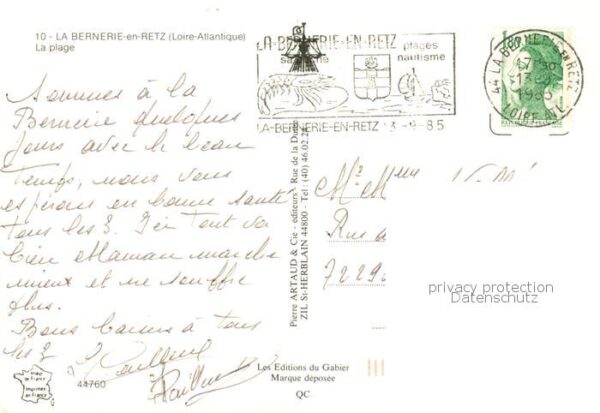 10 - LA BERNERIE-en-RETZ (Loire-Atlantique)
La plage
LA-BERNERIE-EN-RETZ
plages
nautisme
LA-BERNERIE-EN-RETZ 13-9-85
44 LA BERNERIE EN RETZ
LOIRE
Sommes à la
Bernerie quelques
jours avec le beau
temps, nous vous
espérons en bonne santé
tous les 3. Ici tout va
bien Maman marche
mieux et ne souffre
plus.
Bons baisers à tous
les 3
Pierre ARTAUD & Cie - éditeurs - Rue de la
ZIL St-HERBLAIN 44800 - Tél : (40) 46.02.
Mr Mme
Rue
7229
privacy protection
Datenschutz
44760
Les Editions du Gabier
Marque déposée
QC